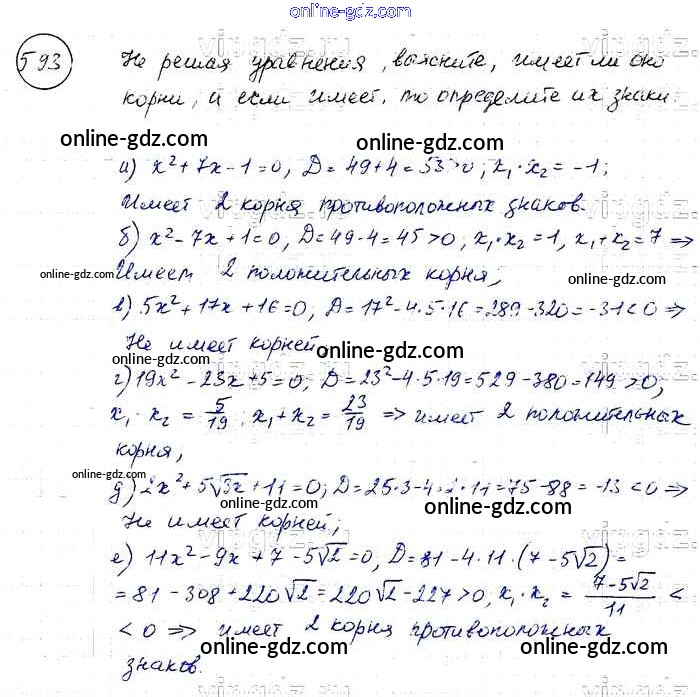 online-gdz.com
593 Не решая уравнения, выясните, имеет ли оно
корни, и если имеет, то определите их знаки
online-gdz.com online-gdz.com
а) x²+7x-1=0, D=49+4=53>0; x₁·x₂=-1;
Имеет 2 корня противоположных знаков.
б) x²-7x+1=0, D=49-4=45>0; x₁·x₂=1, x₁+x₂=7 ⇒
online-gdz.com Имеет 2 положительных корня; online-gdz.com
в) 5x²+17x+16=0; D=17²-4·5·16=289-320=-31<0 ⇒
Не имеет корней; online-gdz.com
г) 19x²-23x+5=0; D=23²-4·5·19=529-380=149>0;
x₁·x₂=5/19; x₁+x₂=23/19 ⇒ имеет 2 положительных
корня;
online-gdz.com online-gdz.com
д) 2x²+5√3x+11=0; D=25·3-4·2·11=75-88=-13<0 ⇒
Не имеет корней; online-gdz.com
е) 11x²-9x+7-5√2=0, D=81-4·11·(7-5√2)=
=81-308+220√2=220√2-227>0, x₁·x₂=(7-5√2)/11<
<0 ⇒ имеет 2 корня противоположных
знаков.
online-gdz.com online-gdz.com